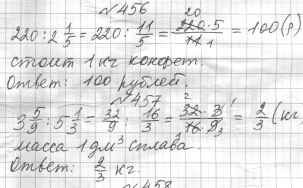 №456
220 : 2 1/5 = 220 : 11/5 = 220·5/11 = 100 (р)
стоит 1 кг конфет.
Ответ: 100 рублей.
№457
3 5/9 : 5 1/3 = 32/9 : 16/3 = 32·3/16·9 = 2/3 (кг)
масса 1 дм³ сплава.
Ответ: 2/3 кг.
№458